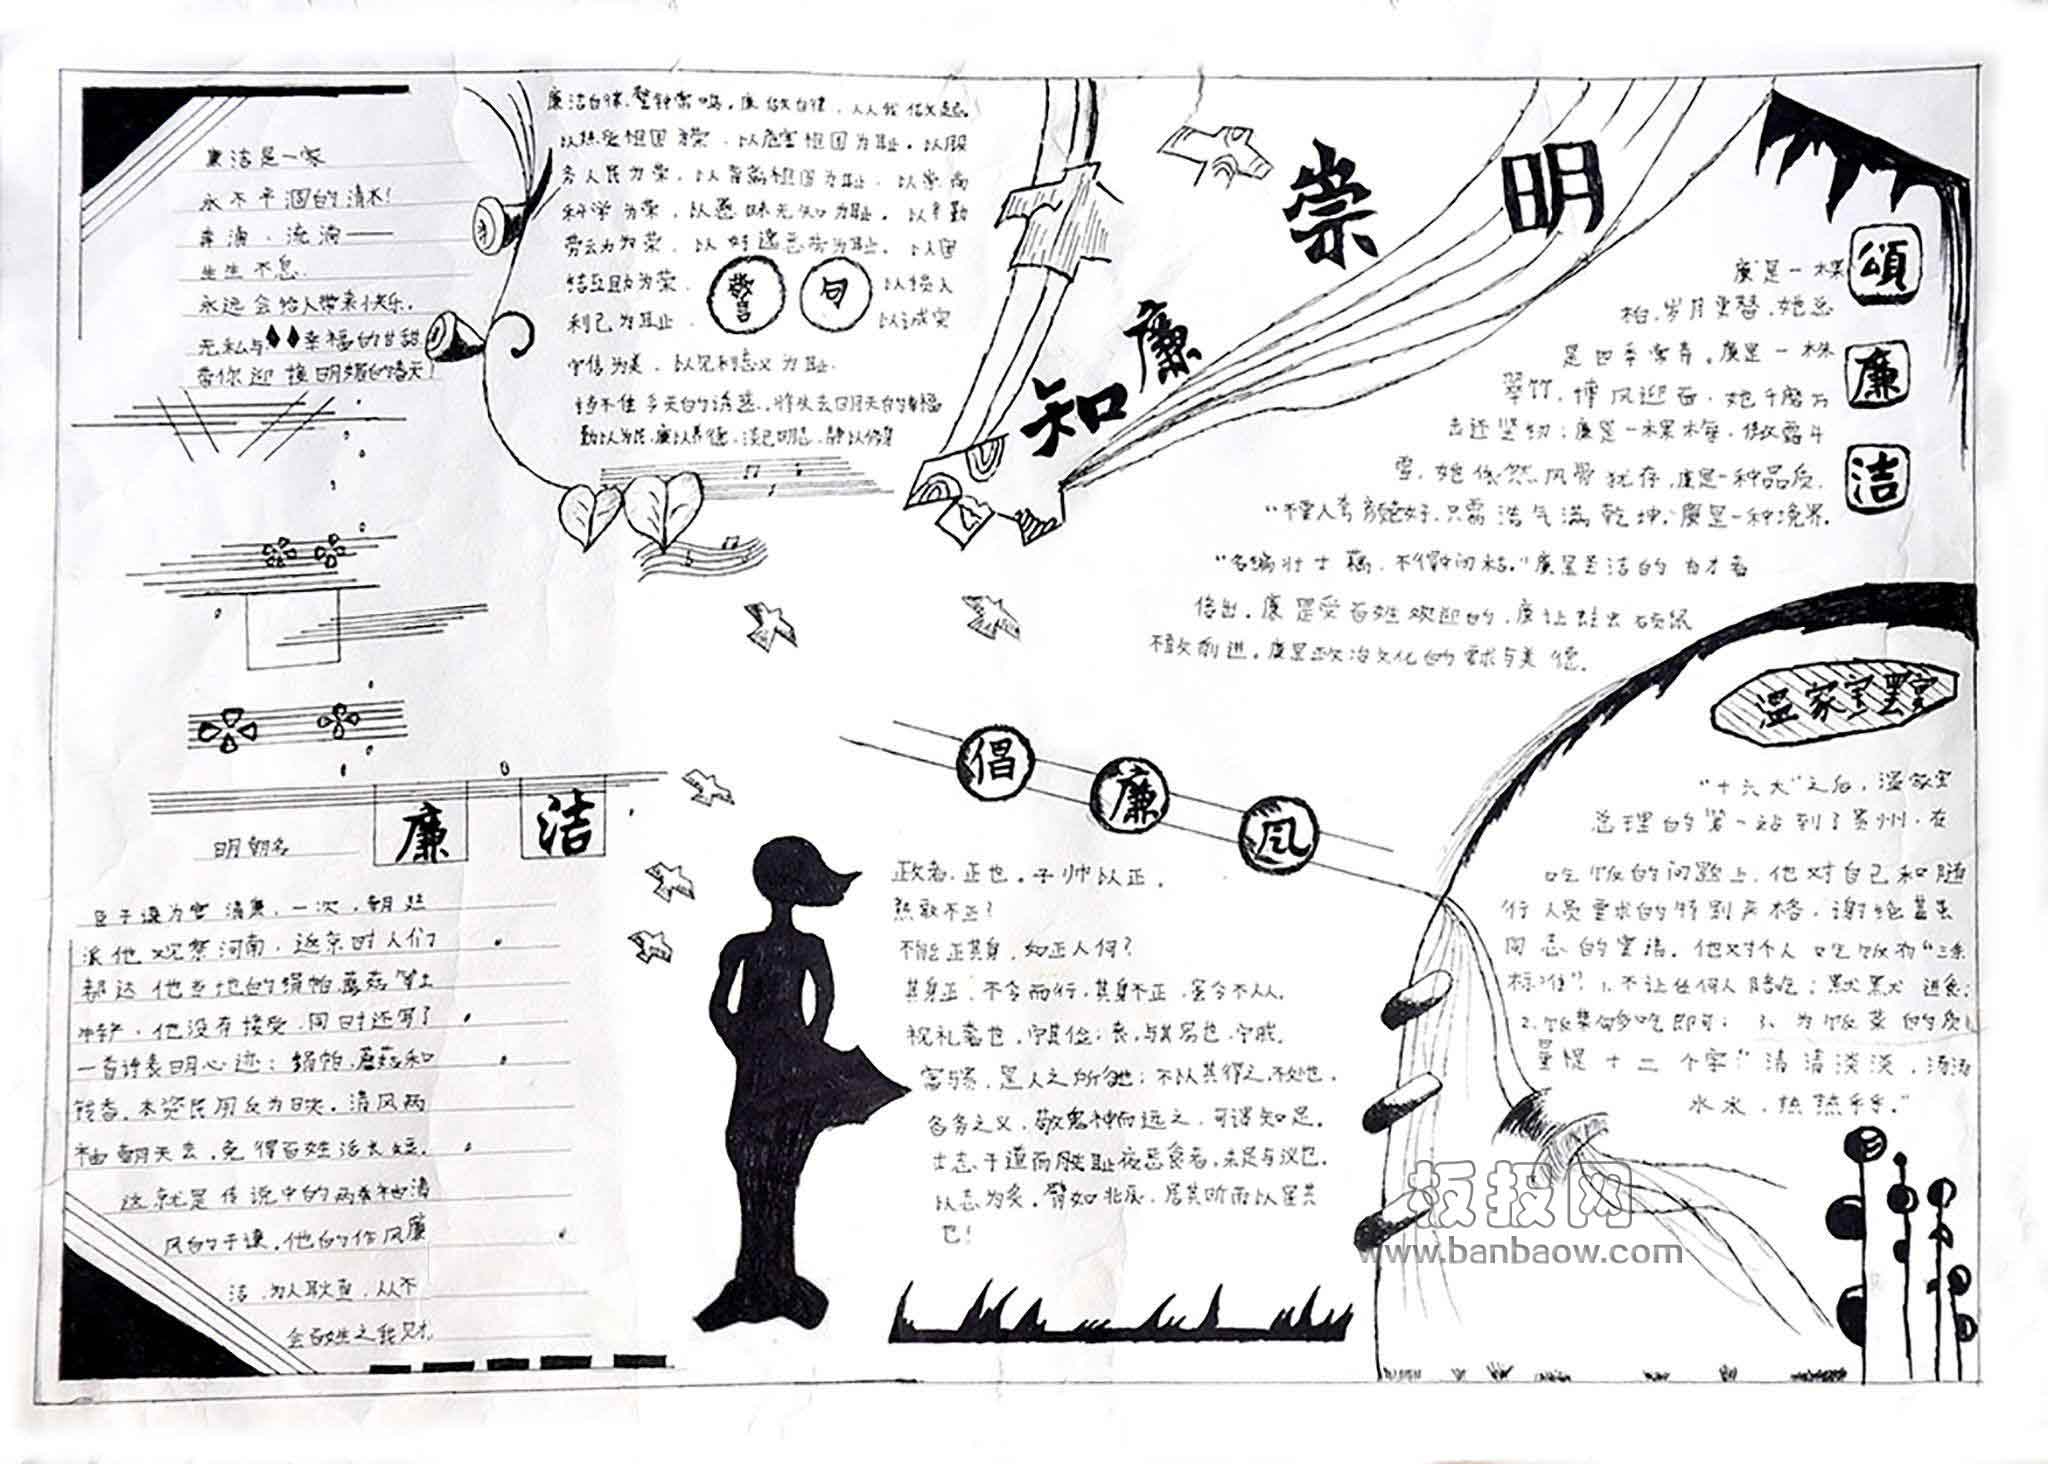 廉洁是一家
永不干涸的清水！
奔涌、流淌——
生生不息.
永远会给人带来快乐.
无私与幸福的甘甜
带你迎接明媚的春天！
廉洁自律，警钟常鸣，廉敬自律，人人我做起
以热爱祖国为荣，以危害祖国为耻，以服
务人民为荣，以背离祖国为耻，以崇尚
科学为荣，以愚昧无知为耻，以辛勤
劳动为荣，以好逸恶劳为耻，以团
结互助为荣，以损人
利己为耻，以诚实
警句
守信为美，以见利忘义为耻.
挡不住今天的诱惑，将失去明天的幸福
勤以为民，廉以养德，淡已明志，静以修身
崇明
知廉
頌廉洁
廉是一棵
柏，岁月更替，她总
是四季常青。廉是一株
翠竹，搏风迎雨，她千磨万
击还坚韧；廉是一棵木梅，傲霜斗
雪，她依然风骨犹存，廉是一种品质.
“不要人夸颜色好，只需浩气满乾坤，廉是一种境界.
不得
廉是受百姓欢迎的，廉让
不敢前进，廉是政治文化的需求与美德。
明朝名
廉洁
臣于谦为官清廉，一次，朝廷
派他观察河南，返京时人们
都送他当地的绢帕、蘑菇等土
特产，他没有接受，同时还写了
一首诗表明心迹：绢帕、蘑菇和
线香，本资民用反为殃。清风两
袖朝天去，免得百姓话长短。
这就是传说中的两袖清
风的于谦，他的作风廉
洁，为人耿直，从不
会百姓之钱财
倡廉风
政者，正也。子帅以正，
熟敢不正？
不能正其身，如正人何？
其身正，不令而行，其身不正，虽令不从。
祝礼奢也，宁其俭；丧，与其易也，宁戚。
富与贵，是人之所欲也；不以其得之，不处也.
务务之义，敬鬼神而远之，可谓知足。
士志于道而耻夜恶食者，未足与议也。
以志为炙，譬如北辰，居其所而以星共
巳！
温家宝罢宴
“十六大”之后，温家宝
总理的第一站到了贵州，在
吃饭的问题上，他对自己和随
行人员要求的特别严格，谢绝某某
同志的宴请。他对个人吃饭有“三条
标准”：1、不让任何人陪吃；默默进食；
2、饭菜够吃即可；3、为饭菜的质
量提十二个字“清清淡淡，汤汤
水水，热热乎乎。”
板报网
www.banbaow.com